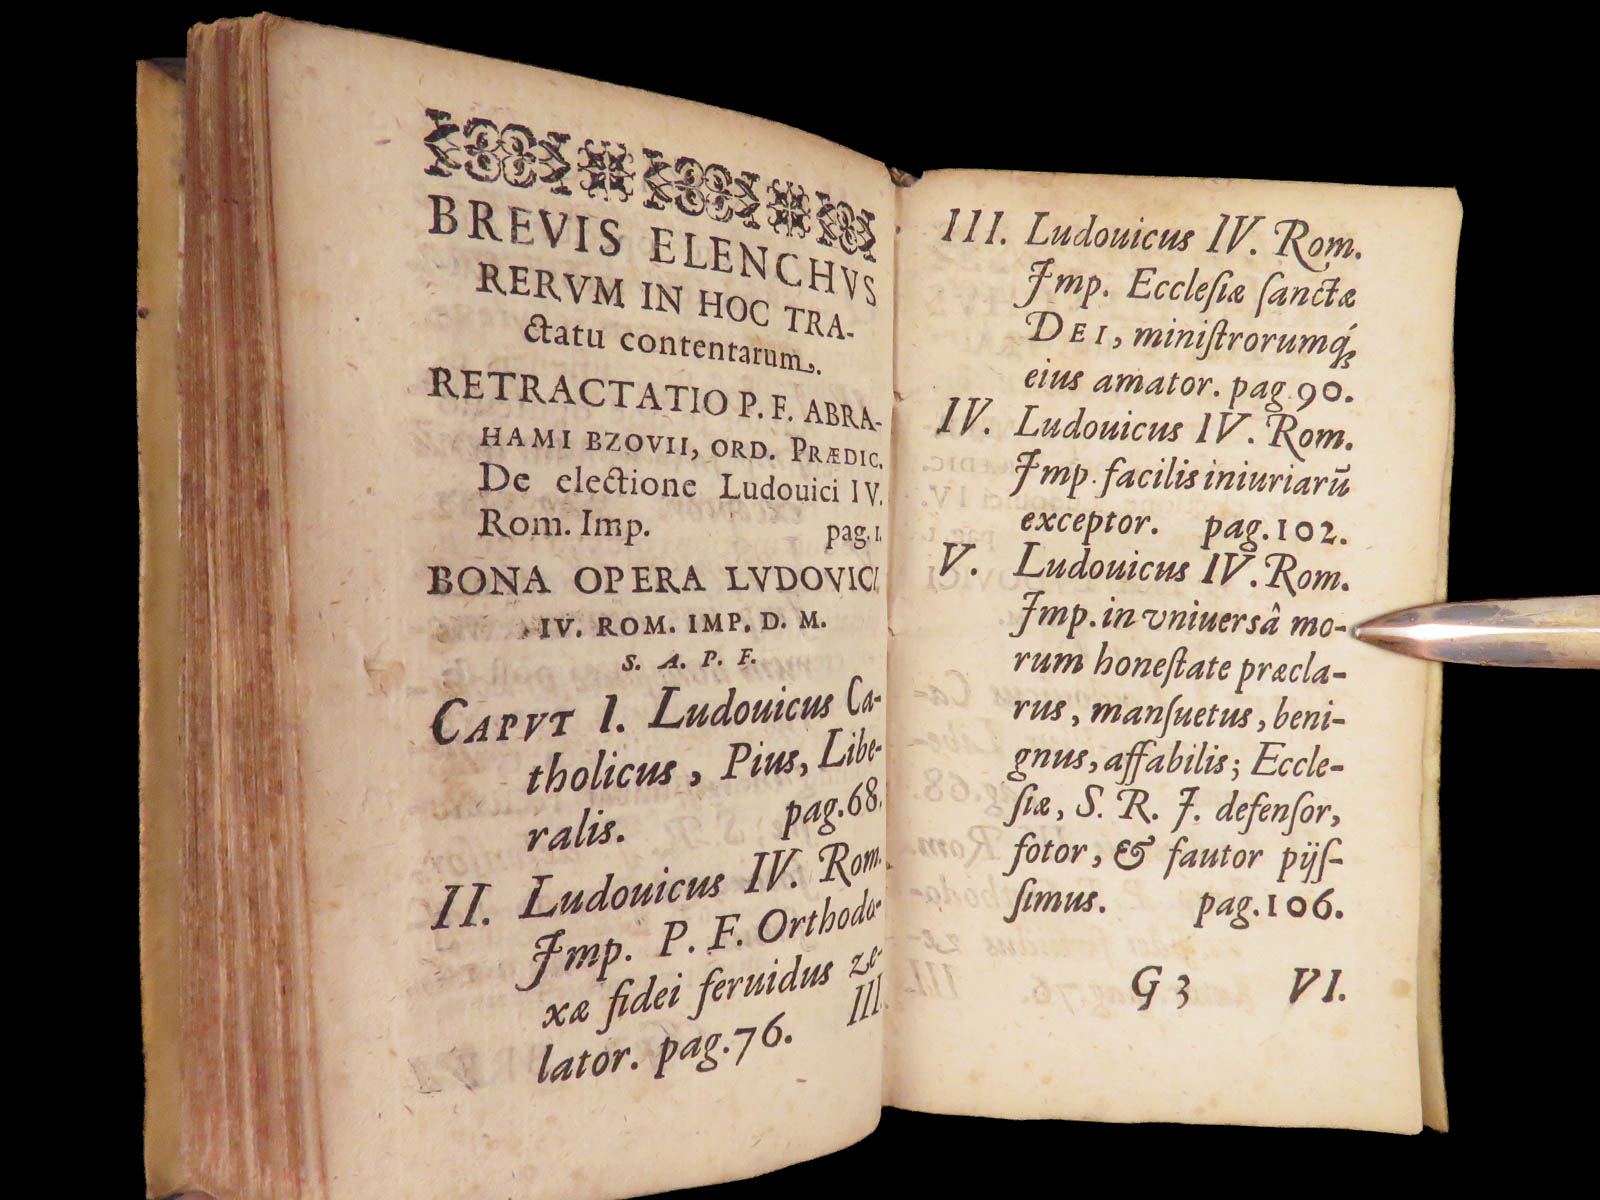 BREVIS ELENCHVS
RERVM IN HOC TRA-
ctatu contentarum.
RETRACTATIO P. F. ABRA-
HAMI BZOVII, ORD. PRÆDIC.
De electione Ludouici IV.
Rom. Imp. pag. 1.
BONA OPERA LVDOVICI
IV. ROM. IMP. D. M.
S. A. P. F.
CAPVT I. Ludouicus Ca-
tholicus, Pius, Libe-
ralis. pag. 68.
II. Ludouicus IV. Rom.
Imp. P. F. Orthodo-
xæ fidei feruidus ze-
lator. pag. 76.
III.
III. Ludouicus IV. Rom.
Imp. Eccleſiæ ſanctæ
DEI, miniſtrorumq́;
eius amator. pag. 90.
IV. Ludouicus IV. Rom.
Imp. facilis iniuriarū
exceptor. pag. 102.
V. Ludouicus IV. Rom.
Imp. in vniuersâ mo-
rum honeſtate præcla-
rus, manſuetus, beni-
gnus, affabilis; Eccle-
ſiæ, S. R. I. defenſor,
fotor, & fautor pijſ-
ſimus. pag. 106.
G 3 VI.